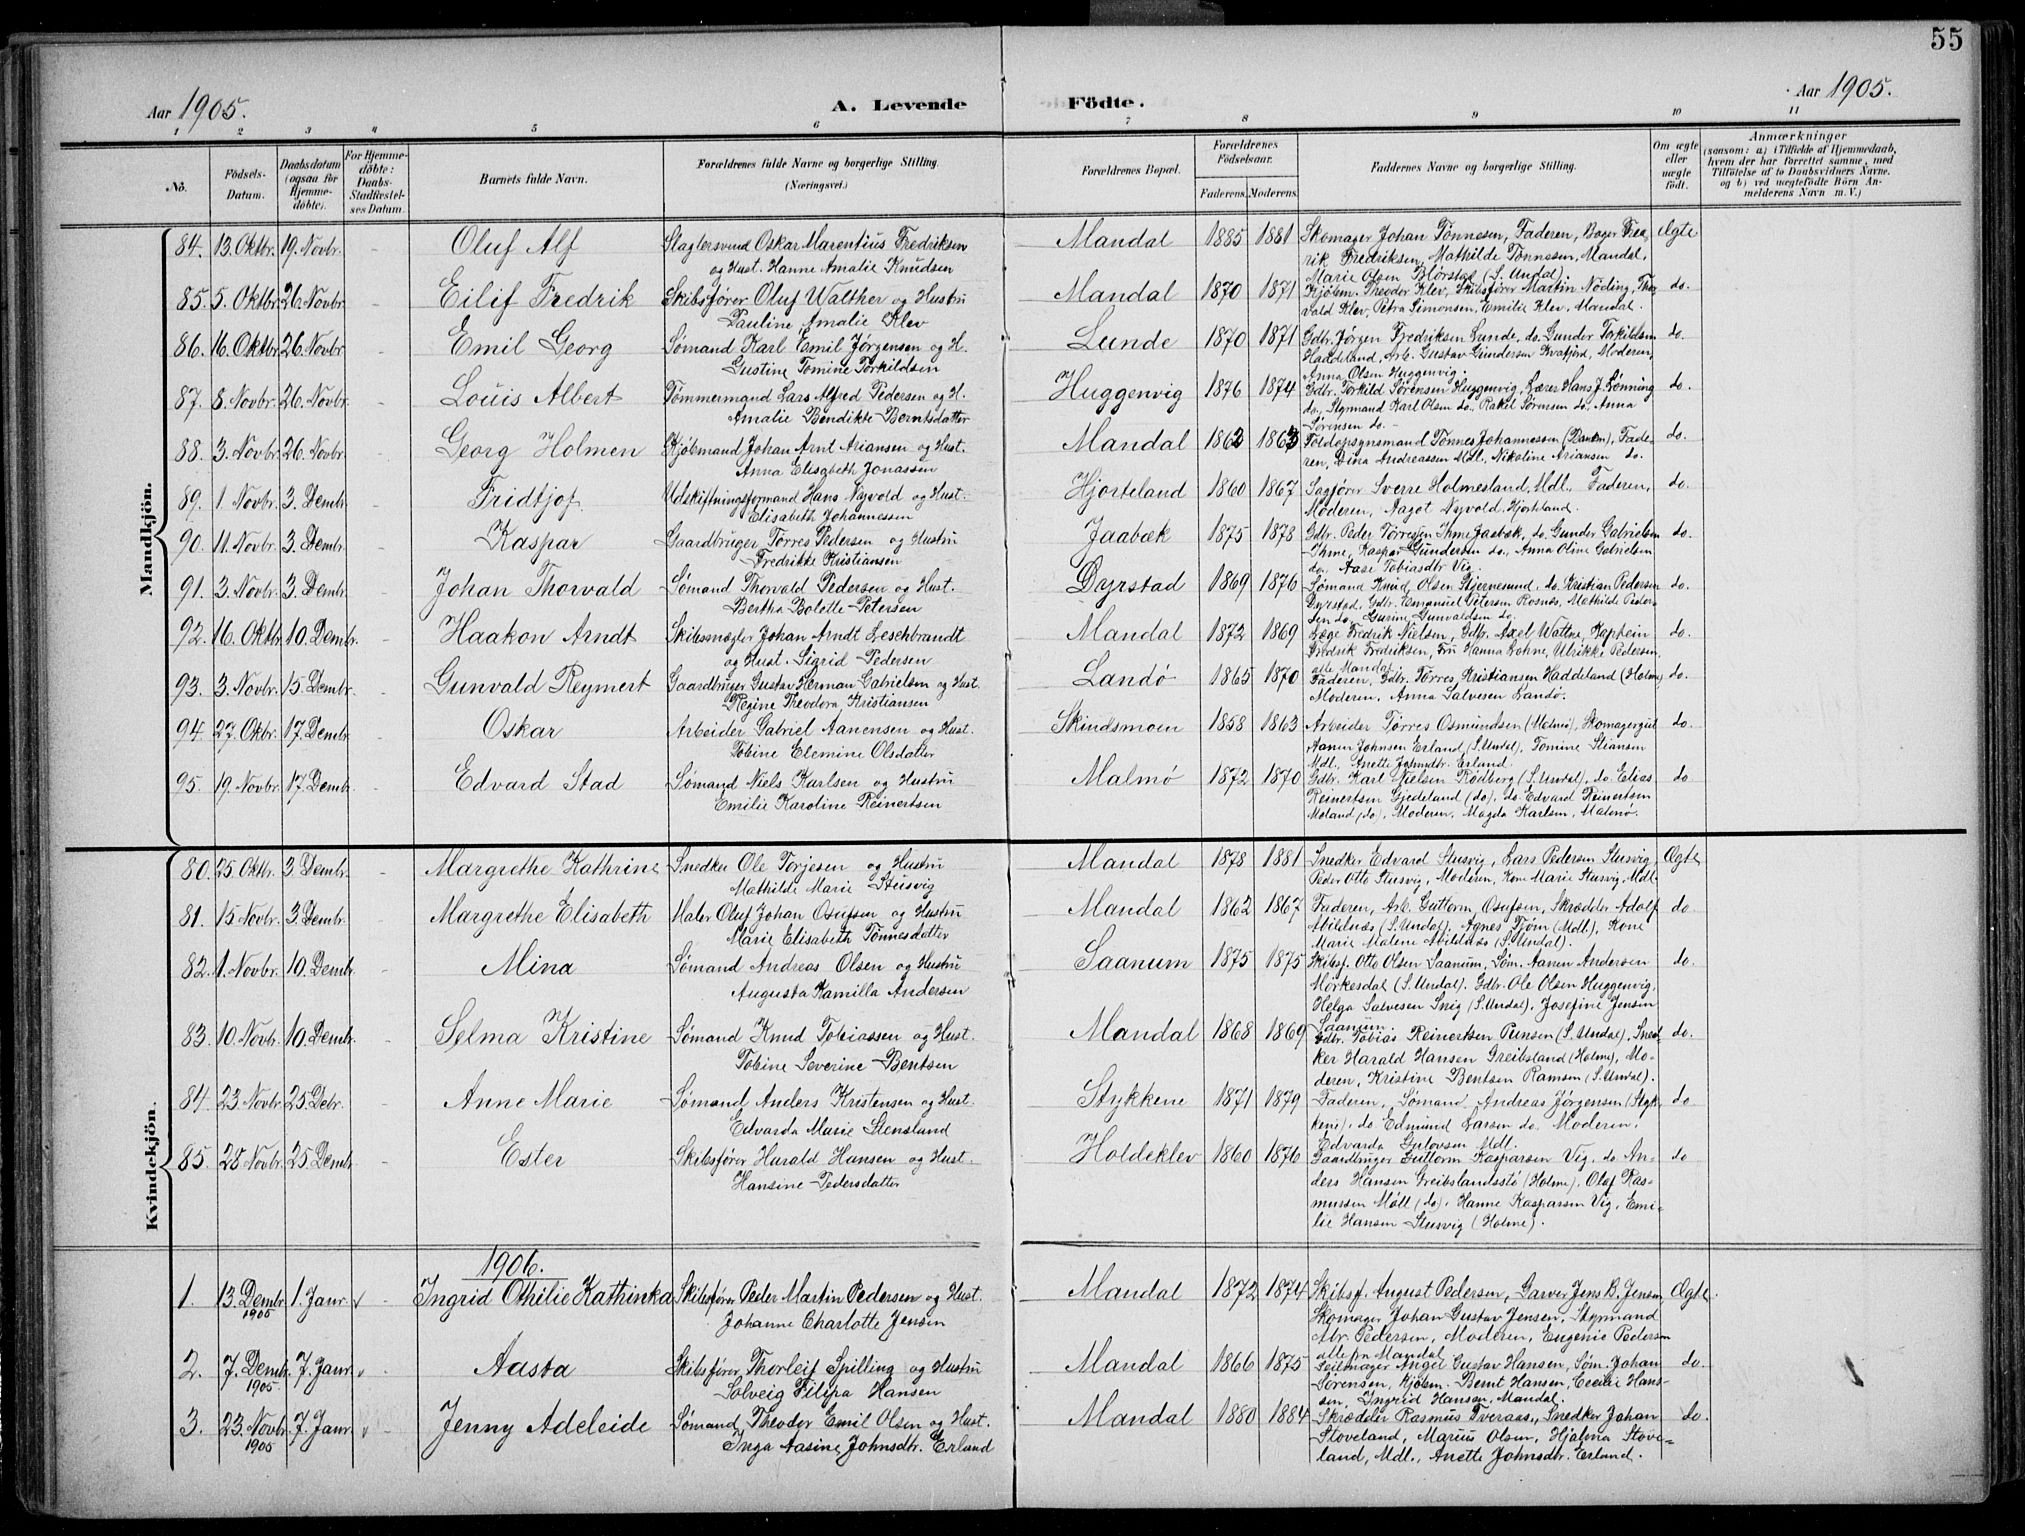 55
Aar 1905.
A. Levende Födte.
Aar 1905.
1 2 3 4 5 6 7 8 9 10 11
No.
Födsels-Datum.
Daabsdatum (ogsaa for Hjemme-döbte).
For Hjemme-döbte: Daabs-Stadfæstel-ses Datum.
Barnets fulde Navn.
Forældrenes fulde Navne og borgerlige Stilling. (Næringsvei.)
Forældrenes Bopæl.
Forældrenes Födselsaar.
Faderens. Moderens.
Faddernes Navne og borgerlige Stilling.
Om ægte eller uægte födt.
Anmærkninger (saasom: a) i Tilfælde af Hjemmedaab, hvem der har forrettet samme, med Tilföielse af to Daabsvidners Navne, og b) ved uægtefödte Börn An-melderens Navn m. V.)
Mandkjön.
84. 13. Oktbr. 19. Novbr. - Oluf Alf Slagtersvend Oskar Marentius Fredriksen Mandal 1885 1881 Skomager Johan Tönnesen, Faderen, Bager Fred- Ægte
og Hust. Hanne Amalie Knudsen rik Fredriksen, Mathilde Tönnesen, Mandal,
Marie Olsen (S. Undal).
85. 5. Oktbr. 26. Novbr. - Eilif Fredrik Skibsförer Oluf Walther og Hustru Mandal 1870 1871 Kjöbm. Theodor Klev, Skibsförer Martin Nöding, Thor- do.
Pauline Amalie Klev vald Klev, Petra Simonsen, Emilie Klev, Mandal.
86. 16. Oktbr. 26. Novbr. Emil Georg Sömand Karl Emil Jörgensen og H. Lunde 1870 1871 Gdbr. Jörgen Fredriksen Lunde, do. Gunder Torkildsen do.
Gustine Tomine Torkildsen Haddeland, Arb. Gustav Gundersen Kvafjord, Moderen,
Anna Olsen Huggenvig.
87. 8. Novbr. 26. Novbr. - Louis Albert Tömmermand Lars Alfred Pedersen og H. Huggenvig 1876 1874 Gdbr. Torkild Sörensen Huggenvig, Lærer Hans J. Lönning do.
Amalie Bendikte Berntsdatter do., Styrmand Karl Olsen do., Rakel Sörensen do., Anna
Sörensen do.
88. 3. Novbr. 26. Novbr. - Georg Holmen Kjöbmand Johan Arnt Ariansen og Hust. Mandal 1862 1863 Toldopsynsmand Tönnes Johannessen, Fade- do.
Anna Elisabeth Jonassen ren, Dina Andreassen Mdl., Nikoline Ariansen do.
89. 1. Novbr. 3. Dembr. - Fridtjof Udskiftningsformand Hans Nyvold og Hust. Hjorteland 1860 1867 Sagförer Sverre Holmesland, Mdl., Faderen, do.
Elisabeth Johannessen Moderen, Aagot Nyvold, Hjorteland.
90. 11. Novbr. 3. Dembr. - Kaspar Gaardbruger Törres Pedersen og Hustru Jaabæk 1875 1878 Gdbr. Peder Törresen Ihme Jaabæk, do. Gunder Gabrielsen do.
Fredrikke Kristiansen Ihme, Kaspar Gundersen do., Anna Oline Gabrielsen
do., Aase Tobiasdtr Vig.
91. 3. Novbr. 3. Dembr. - Johan Thorvald Sömand Thorvald Pedersen og Hust. Dyrstad 1869 1876 Sömand Knud Olsen Stjernesund, do. Kristian Pedersen do.
Bertha Bolette Petersen Dyrstad, Gdbr. Emanuel Petersen Rosnæs, Mathilde Peder-
sen do., Gurine Gunvaldsen do.
92. 16. Oktbr. 10. Dembr. Haakon Arndt Skibsmægler Johan Arndt Leschbrandt Mandal 1872 1869 Læge Fredrik Nielsen, Gdbr. Axel Wattne, Kaptein do.
og Hust. Sigrid Pedersen Fredrik Fredriksen, Fru Hanna Lohne, Ulrikke Pedersen,
alle Mandal.
93. 3. Novbr. 15. Dembr. - Gunvald Reymert Gaardbruger Gustav Herman Gabrielsen og Hust. Landö 1865 1870 Faderen, Gdbr. Törres Kristiansen Haddeland (Holme) do.
Regine Theodora Kristiansen Moderen, Anna Salvesen Landö.
94. 27. Oktbr. 17. Dembr. - Oskar Arbeider Gabriel Aanensen og Hust. Skindsmoen 1858 1863 Arbeider Törres Osmundsen (Malmö), Skomagergut do.
Tobine Elemine Olsdatter Aanen Johnsen Erland (S. Undal), Tomine Stiansen
Mdl., Anette Johnsdtr. Erland.
95. 19. Novbr. 17. Dembr. - Edvard Stad Sömand Niels Karlsen og Hustru Malmö 1872 1870 Gdbr. Karl Nielsen Rödberg (S. Undal), do. Elias do
Emilie Karoline Reinertsen Reinertsen Gjedeland (do), do. Edvard Reinertsen
Moland (do), Moderen, Magda Karlsen, Malmö.
Kvindekjön.
80. 25. Oktbr. 3. Dembr. - Margrethe Kathrine Snedker Ole Torjesen og Hustru Mandal 1878 1881 Snedker Edvard Stusvig, Lars Pedersen Stusvig, Ægte
Mathilde Marie Stusvig Peder Otto Stusvig, Moderen, Kone Marie Stusvig, Mdl.
81. 15. Novbr. 3. Dembr. - Margrethe Elisabeth Maler Oluf Johan Osufsen og Hustru Mandal 1862 1867 Faderen, Arb. Guttorm Osufsen, Skrædder Adolf do
Marie Elisabeth Tönnesdatter Abildnæs (S. Undal), Agnes Tjöm (Mdl), Kone
Marie Malene Abildnæs (S. Undal).
82. 1. Novbr. 10. Dembr. - Mina Sömand Andreas Olsen og Hustru Saanum 1875 1875 Skibsf. Otto Olsen Saanum, Söm. Aanen Andersen do.
Augusta Kamilla Andersen Mörkesdal (S. Undal), Gdbr. Ole Olsen Huggenvig,
Helga Salvesen Snig (S. Undal), Josefine Jensen
Saanum
83. 10. Novbr. 10. Dembr. - Selma Kristine Sömand Knud Tobiassen og Hust. Mandal 1868 1869 Gdbr. Tobias Reinertsen (S. Undal), Sned- do.
Tobine Severine Bentsen ker Harald Hansen Greibsland (Holme), Mo-
deren, Kristine Bentsen Ramsøn (S. Undal).
84. 23. Novbr. 25. Debr. - Anne Marie Sömand Anders Kristensen og Hust. Stykkene 1871 1879 Faderen, Sömand Andreas Jörgensen (Styk- do
Edvarda Marie Stensland kene), do Edmund Larsen do, Moderen,
Edvarda Mdl.
85. 28. Novbr. 25. Dembr. - Ester Skibsförer Harald Hansen og Hust. Holdeklev 1860 1876 Gaardbruger Guttorm Kasparsen Vig, do An- do
Hansine Pedersdatter ders Hansen Greibslandsstö (Holme), Olaf Ras-
mussen Möll (do), Hanne Kasparsen Vig, Emi-
lie Hansen Stusvig (Holme).
1906.
1. 13. Dembr. 1905 1. Janr. v Ingrid Othilie Kathinka Skibsförer Peder Martin Pedersen og Hust. Mandal 1872 1874 Skibsf. August Pedersen, Garver Jens B. Jensen Ægte.
Johanne Charlotte Jensen Skomager Johan Gustav Jensen, Styrmand
Abr. Pedersen, Moderen, Eugenie Pedersen
alle fra Mandal
2. 7. Dembr. 1905. 7. Janr. v Aasta Skibsförer Thorleif Spilling og Hustru Mandal 1866 1875 Seilmager Angel Gustav Hansen, Söm. Johan do.
Solveig Filipa Hansen Sörensen, Kjöbm. Bernt Hansen, Cecilie Han-
sen, Ingrid Hansen, Mandal.
3. 23. Novbr. 1905 7. Janr. v Jenny Adeleide Sömand Theodor Emil Olsen og Hust. Mandal 1880 1884 Skrædder Rasmus Tveraas, Snedker Johan do.
Inga Aasine Johnsdtr. Erland Stoveland, Marius Olsen, Hjalma Stove-
land, Mdl., Anette Johnsdtr. Erland.